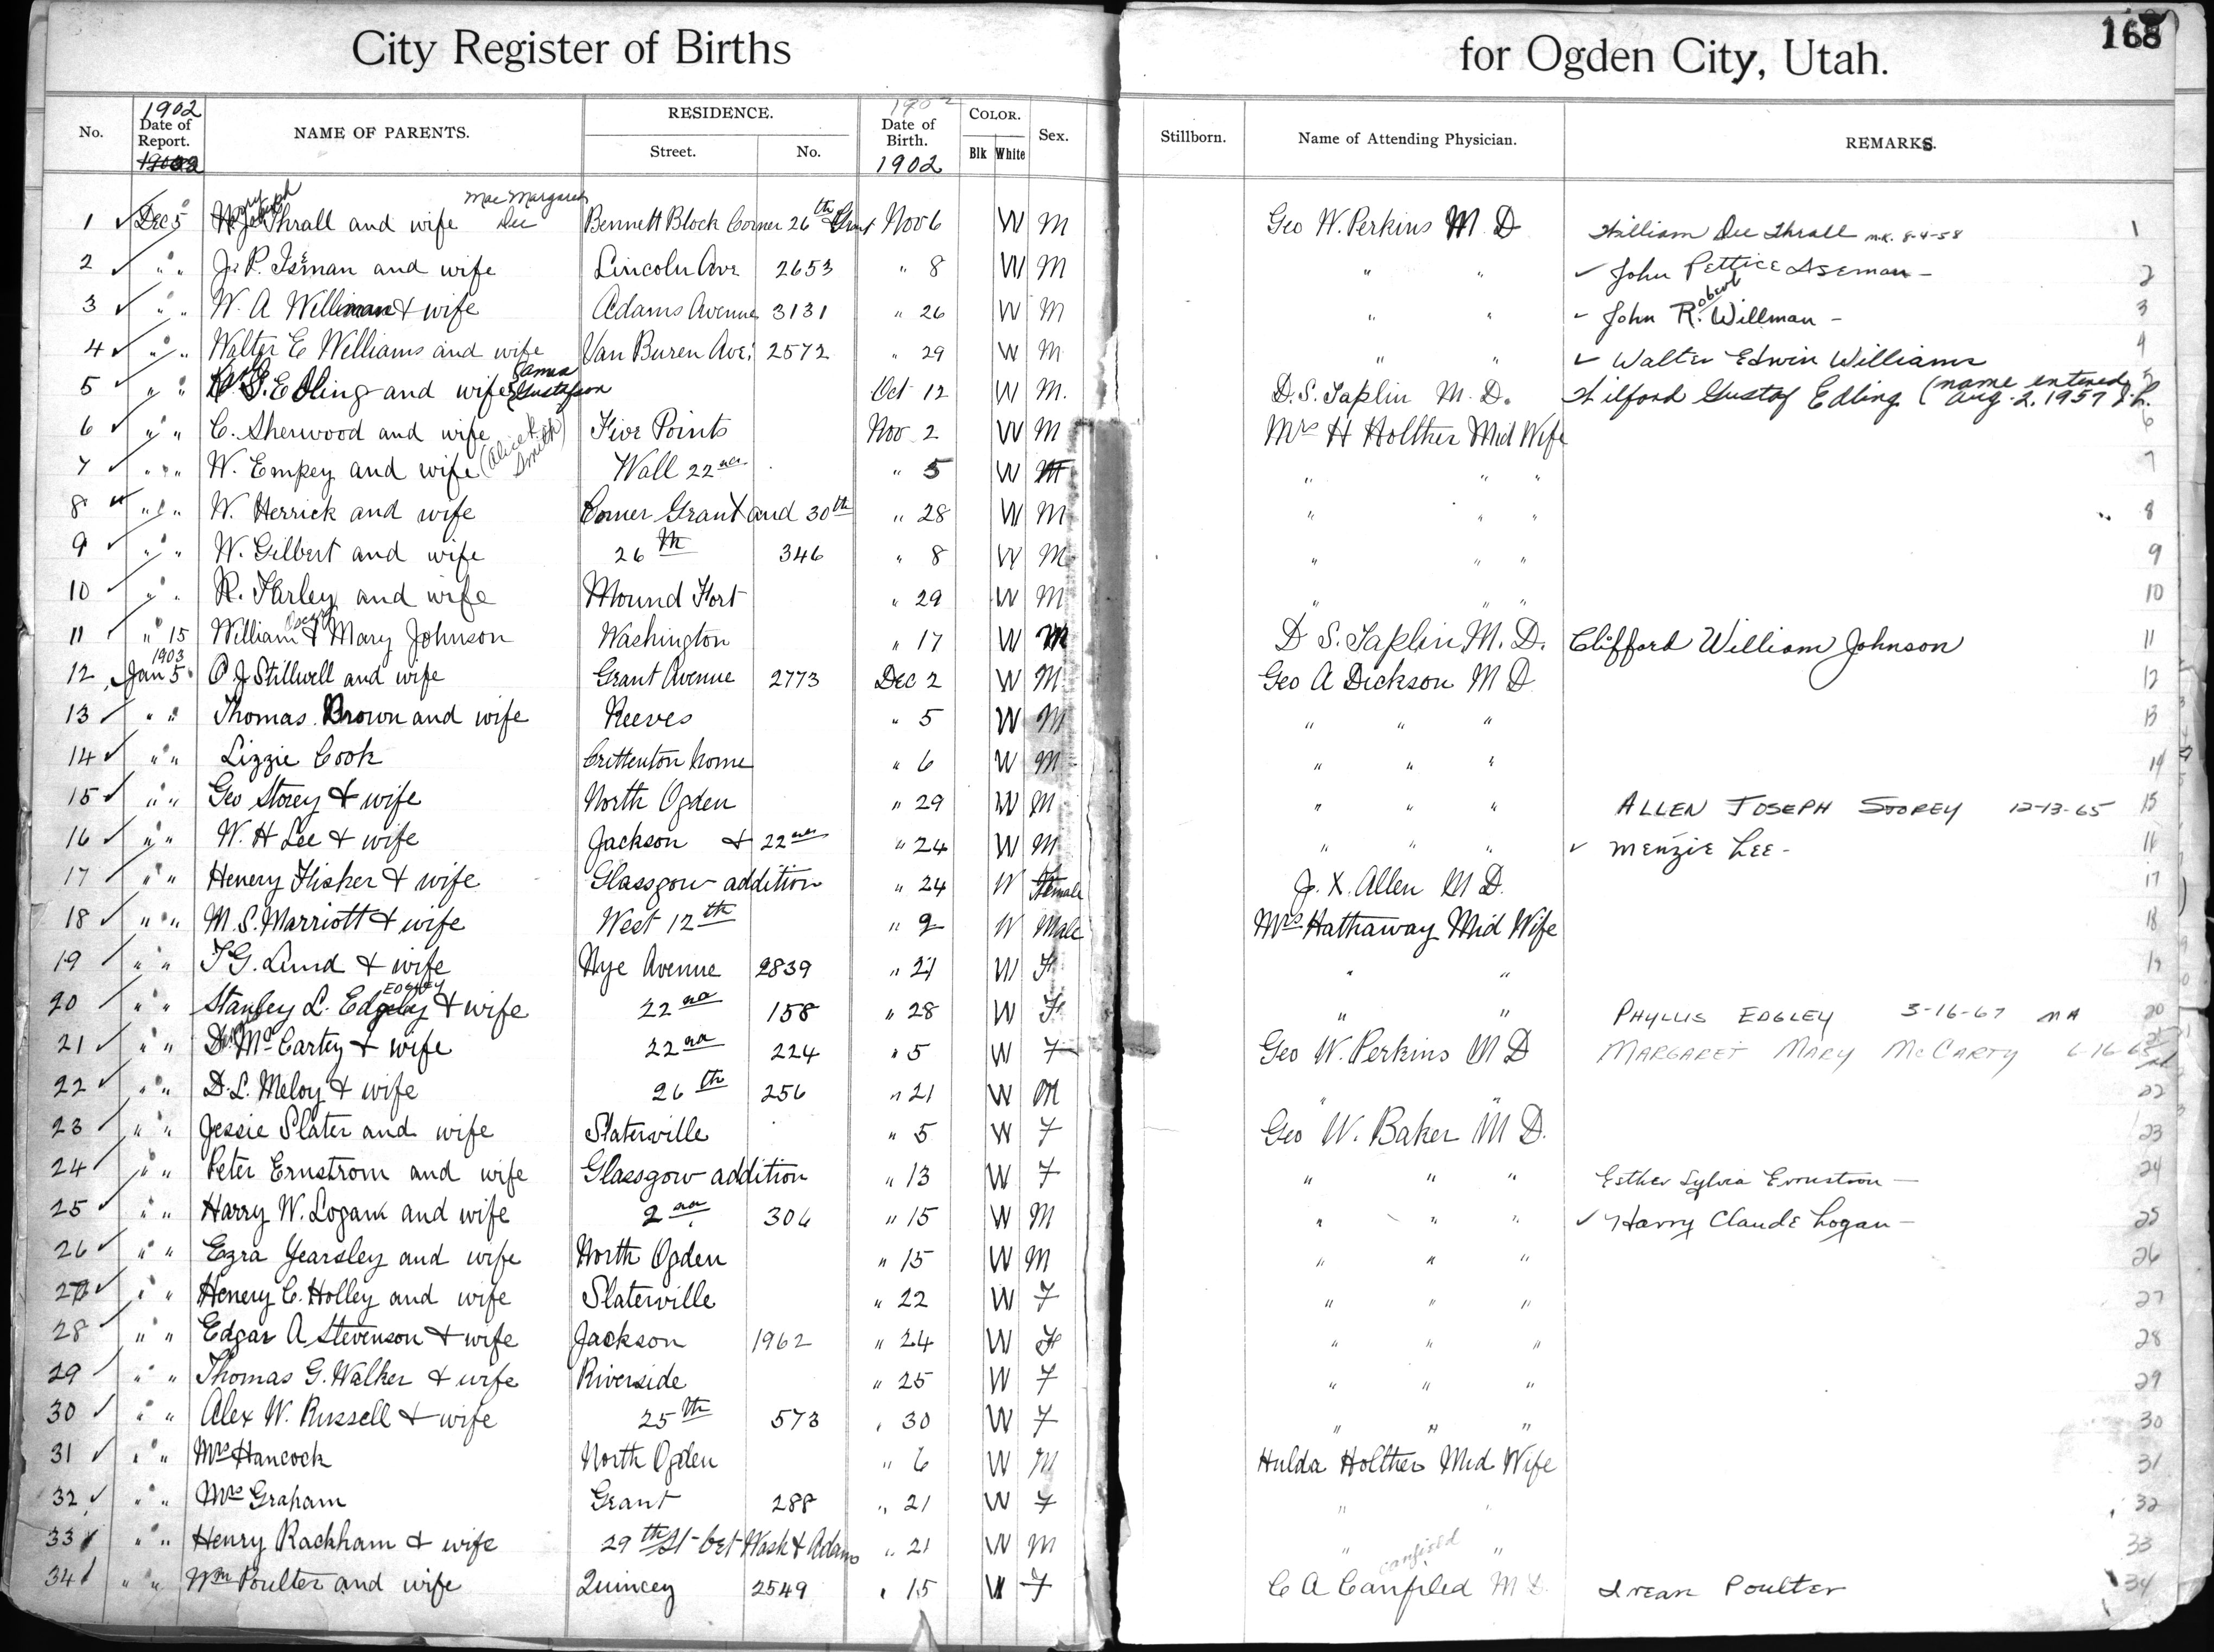 City Register of Births for Ogden City, Utah. 168
No. 1902 Date of Report. 1902 NAME OF PARENTS. RESIDENCE. Street. No. 1902 Date of Birth. 1902 COLOR. Blk White Sex. Stillborn. Name of Attending Physician. REMARKS.
Harry Joseph Mae Margaret
1 ✓ Dec 5 H. J. Thrall and wife Dee Bennett Block Corner 26th Grant Nov 6 W M Geo W. Perkins M D William Dee Thrall m.k. 8-4-58 1
2 ✓ " " J. P. Iseman and wife Lincoln Ave 2653 " 8 W M " " ✓ John Pettice Iseman - 2
3 ✓ " " W. A Willman & wife Adams Avenue 3131 " 26 W M " " ✓ John Robert Willman - 3
4 ✓ " " Walter E Williams and wife Van Buren Ave. 2572 " 29 W M " " ✓ Walter Edwin Williams 4
5 ✓ " " G. Edling and wife Gustafson Oct 12 W M. D. S. Taplin M. D. Wilford Gustaf Edling (name entered Aug. 2, 1957 5
6 ✓ " " C. Sherwood and wife (Alice Smith) Five Points Nov 2 W M Mrs H Holther Mid Wife 6
7 ✓ " " W. Empey and wife Wall 22nd " 5 W M " " " 7
8 " " " W. Herrick and wife Corner Grant and 30th " 28 W M " " " 8
9 ✓ " " W. Gilbert and wife 26th 346 " 8 W M " " " 9
10 ✓ " " R. Farley and wife Mound Fort " 29 W M " " " 10
11 ✓ " 15 William & Mary Johnson Washington " 17 W M D S. Taplin, M. D. Clifford William Johnson 11
1903
12 Jan 5 O J Stillwell and wife Grant Avenue 2773 Dec 2 W M Geo A Dickson M D 12
13 ✓ " " Thomas Brown and wife Reeves " 5 W M " " " 13
14 ✓ " " Lizzie Cook Crittenton home " 6 W M " " " 14
15 ✓ " " Geo Storey & wife North Ogden " 29 W M " " " ALLEN JOSEPH STOREY 12-13-65 15
16 ✓ " " W. H Lee & wife Jackson & 22nd " 24 W M " " " ✓ Menzie Lee - 16
17 ✓ " " Henery Fisker & wife Glassgow addition " 24 W Female J. X. Allen M D. 17
18 ✓ " " M. S. Marriott & wife West 12th " 2 W Male Mrs Hathaway Mid Wife 18
19 ✓ " " T G. Lund & wife Nye Avenue 2839 " 21 W F " " 19
EDGLEY
20 ✓ " " Stanley L. Edgley & wife 22nd 158 " 28 W F " " PHYLLIS EDGLEY 3-16-67 MA 20
21 ✓ " " McCartey & wife 22nd 224 " 5 W F Geo W. Perkins M D MARGARET MARY McCARTY 6-16-65 21
22 ✓ " " D. L. Meloy & wife 26th 256 " 21 W M " " 22
23 ✓ " " Jessie Slater and wife Slaterville " 5 W F Geo W. Baker M D. 23
24 ✓ " " Peter Ernstrom and wife Glassgow addition " 13 W F " " " Esther Sylvia Ernstrom - 24
25 ✓ " " Harry W. Logan and wife 2nd 306 " 15 W M " " " ✓ Harry Claude Logan - 25
26 ✓ " " Ezra Yearsley and wife North Ogden " 15 W M " " " 26
27 ✓ " " Henery C. Holley and wife Slaterville " 22 W F " " " 27
28 ✓ " " Edgar A Stevenson & wife Jackson 1962 " 24 W F " " " 28
29 ✓ " " Thomas G. Walker & wife Riverside " 25 W F " " " 29
30 ✓ " " Alex W. Russell & wife 25th 573 " 30 W F " " " 30
31 ✓ " " Mrs Hancock North Ogden " 6 W M Hulda Holther Mid Wife 31
32 ✓ " " Mrs Graham Grant 288 " 21 W F " " 32
33 ✓ " " Henry Rackham & wife 29th St bet Wash & Adams " 21 W M " " 33
canfield
34 ✓ " " Wm Poulter and wife Quincey 2549 " 15 W F C A Canfiled M D. Irean Poulter 34